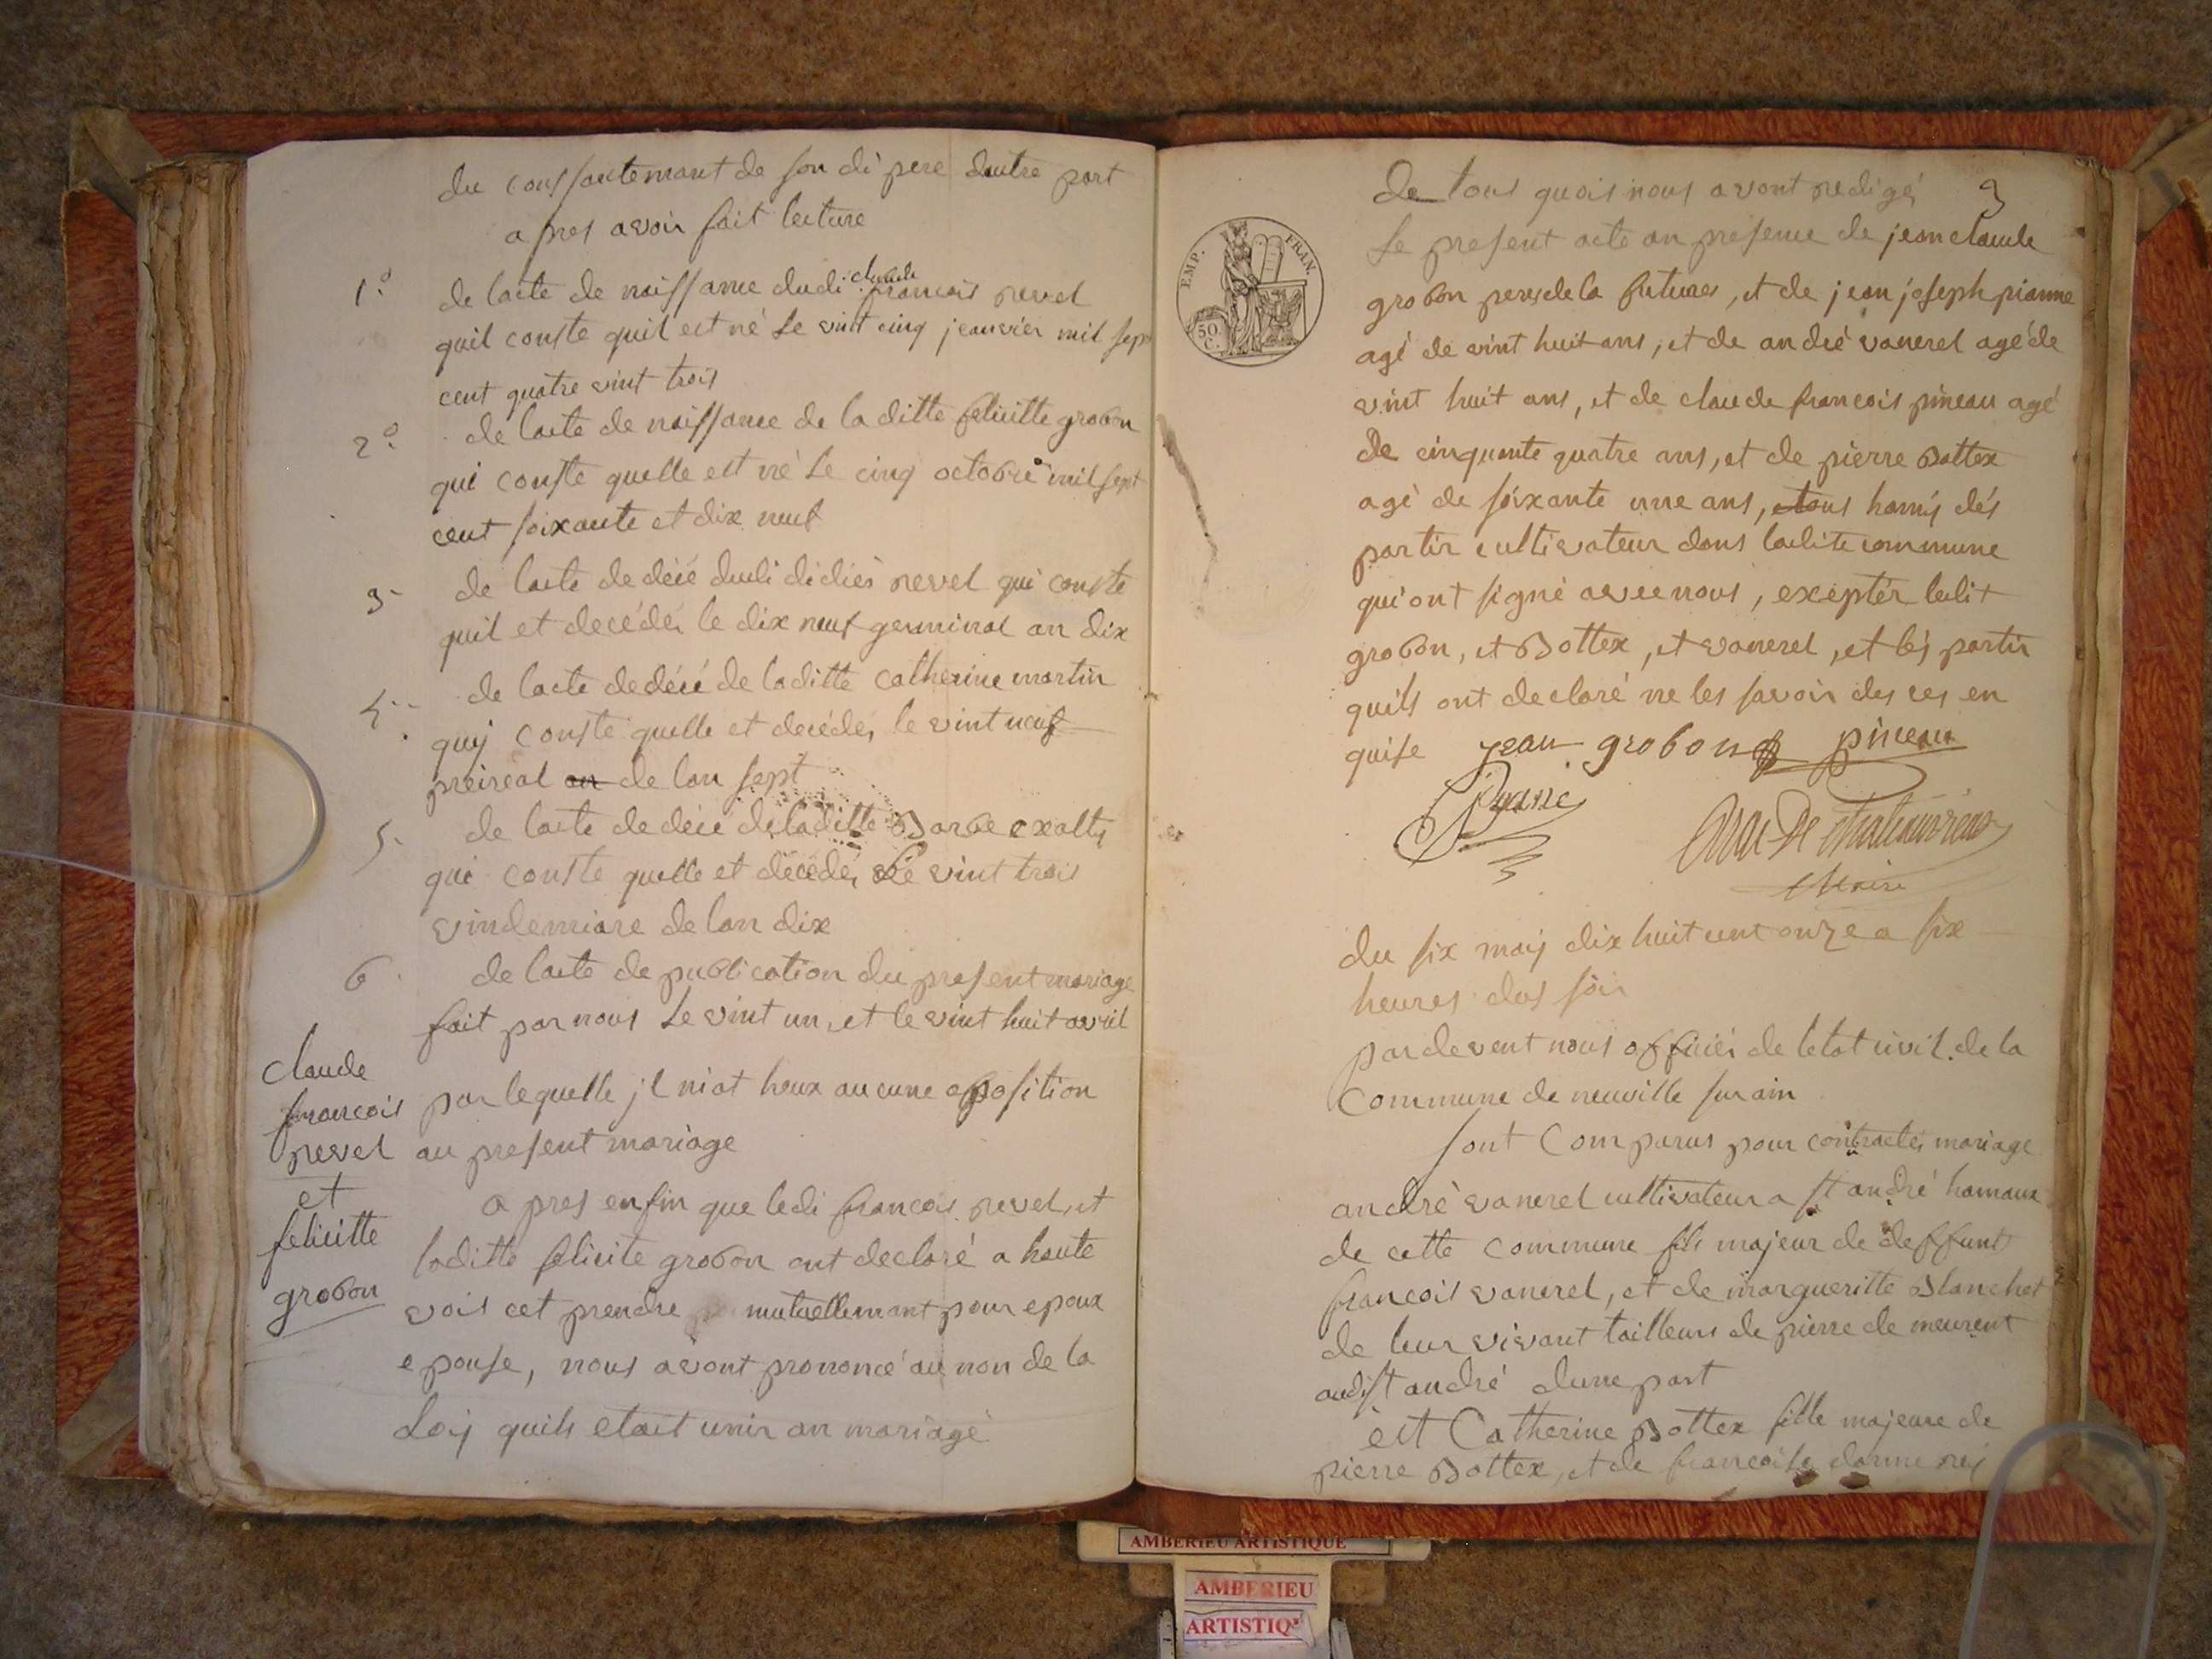 du consantemant de son di pere dautre part
apres avoir fait lecture
1º de lacte de naissance dudi claude francois revel
quil conste quil est né le vint cinq jeanvier mil sept
cent quatre vint trois
2º de lacte de naissance de la ditte felicitte grobon
qui conste quelle est né le cinq octobre mil sept
cent soixante et dix neuf
3 de lacte de décé dudi didier revel qui conste
quil et decédér le dix neuf germinal an dix
4 de lacte de décé de laditte Catherine martin
quij conste quelle et decéder le vint neuf
preireal an de lan sept
5 de lacte de décé de laditte Barbe
qui conste quelle et décéder le vint trois
vindemiare de lan dix
6 de lacte de publication du present mariage
fait par nous le vint un, et le vint huit avril
par lequelle jl niat heux aucune oposition
au present mariage
claude
francois
revel
et
felicitte
grobon
a pres enfin que ledi francois revel, et
laditte felicite grobon ont declaré a haute
vois cet prendre mutuellemant pour epoux
epouse, nous avont prononcé au non de la
Loij quils etait unir an mariage
EMP. FRAN.
50 C.
9
de tous quois nous avont redigé
le present acte an presence de jean claude
grobon peres de la futures, et de jean joseph pianne
agé de vint huit ans, et de andré vanerel agé de
vint huit ans, et de claude francois pineau agé
de cinquante quatre ans, et de pierre Bottex
agé de soixante une ans, tous hamis dés
partir cultivateur dans ladite commune
qui ont signé avec nous, exceptér ledit
grobon, et Bottex, et vanerel, et lés partir
quils ont declaré ne les savoir des ces en
quise jean grobon pineau
Pyanne
Maire
du six maij dix huit cent onze a six
heures dus soir
par devent nous officiér de letat civil de la
Commune de neuville sur ain
sont Comparus pour contractér mariage
andré vanerel cultivateur a st andré hamaux
de cette commune fils majeur de deffunt
francois vanerel, et de margueritte Blanchet
de leur vivant tailleurs de pierre de meurent
audist andré dune part
est Catherine Bottex fille majeure de
pierre Bottex, et de francoise
AMBERIEU ARTISTIQUE
AMBERIEU
ARTISTIQ